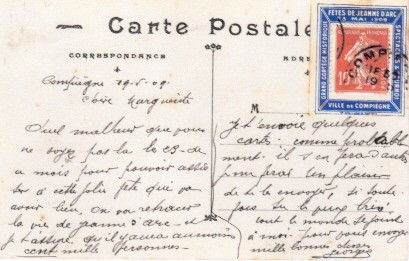 Carte Postale
CORRESPONDANCE
ADRE
FÊTES DE JEANNE D'ARC
MAI 1909
GRAND CORTÈGE HISTORIQUE
SPECTACLES
VILLE DE COMPIÈGNE
10
COMPI
19
M
Compiègne 19-5-09
Chère Marguerite
Quel malheur que vous ne
soyez pas là le 23 de
ce mois pour pouvoir assis
ter à cette jolie fête qui va
avoir lieu. On va retracer
la vie de Jeanne d'arc et
je t'assure qu'il y aura au moins
cent mille personnes.
Je t'envoie quelques
cartes comme
ment il s'en fera d'autres
je me ferai un plaisir
de te les envoyer, si tout
fois tu le
tout le monde se joint
à moi pour vous envoyer
mille bonnes choses
Georges